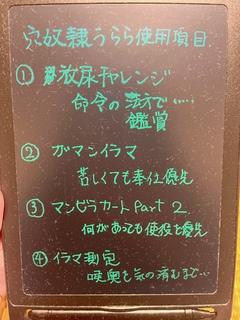 穴奴隷うらら使用項目
① 放尿チャレンジ
命令の
鑑賞
② ガマンイラマ
苦しくても奉仕優先
③ マンビラカート Part 2.
何があっても使役を優先
④ イラマ測定
喉奥を気の済むまで…